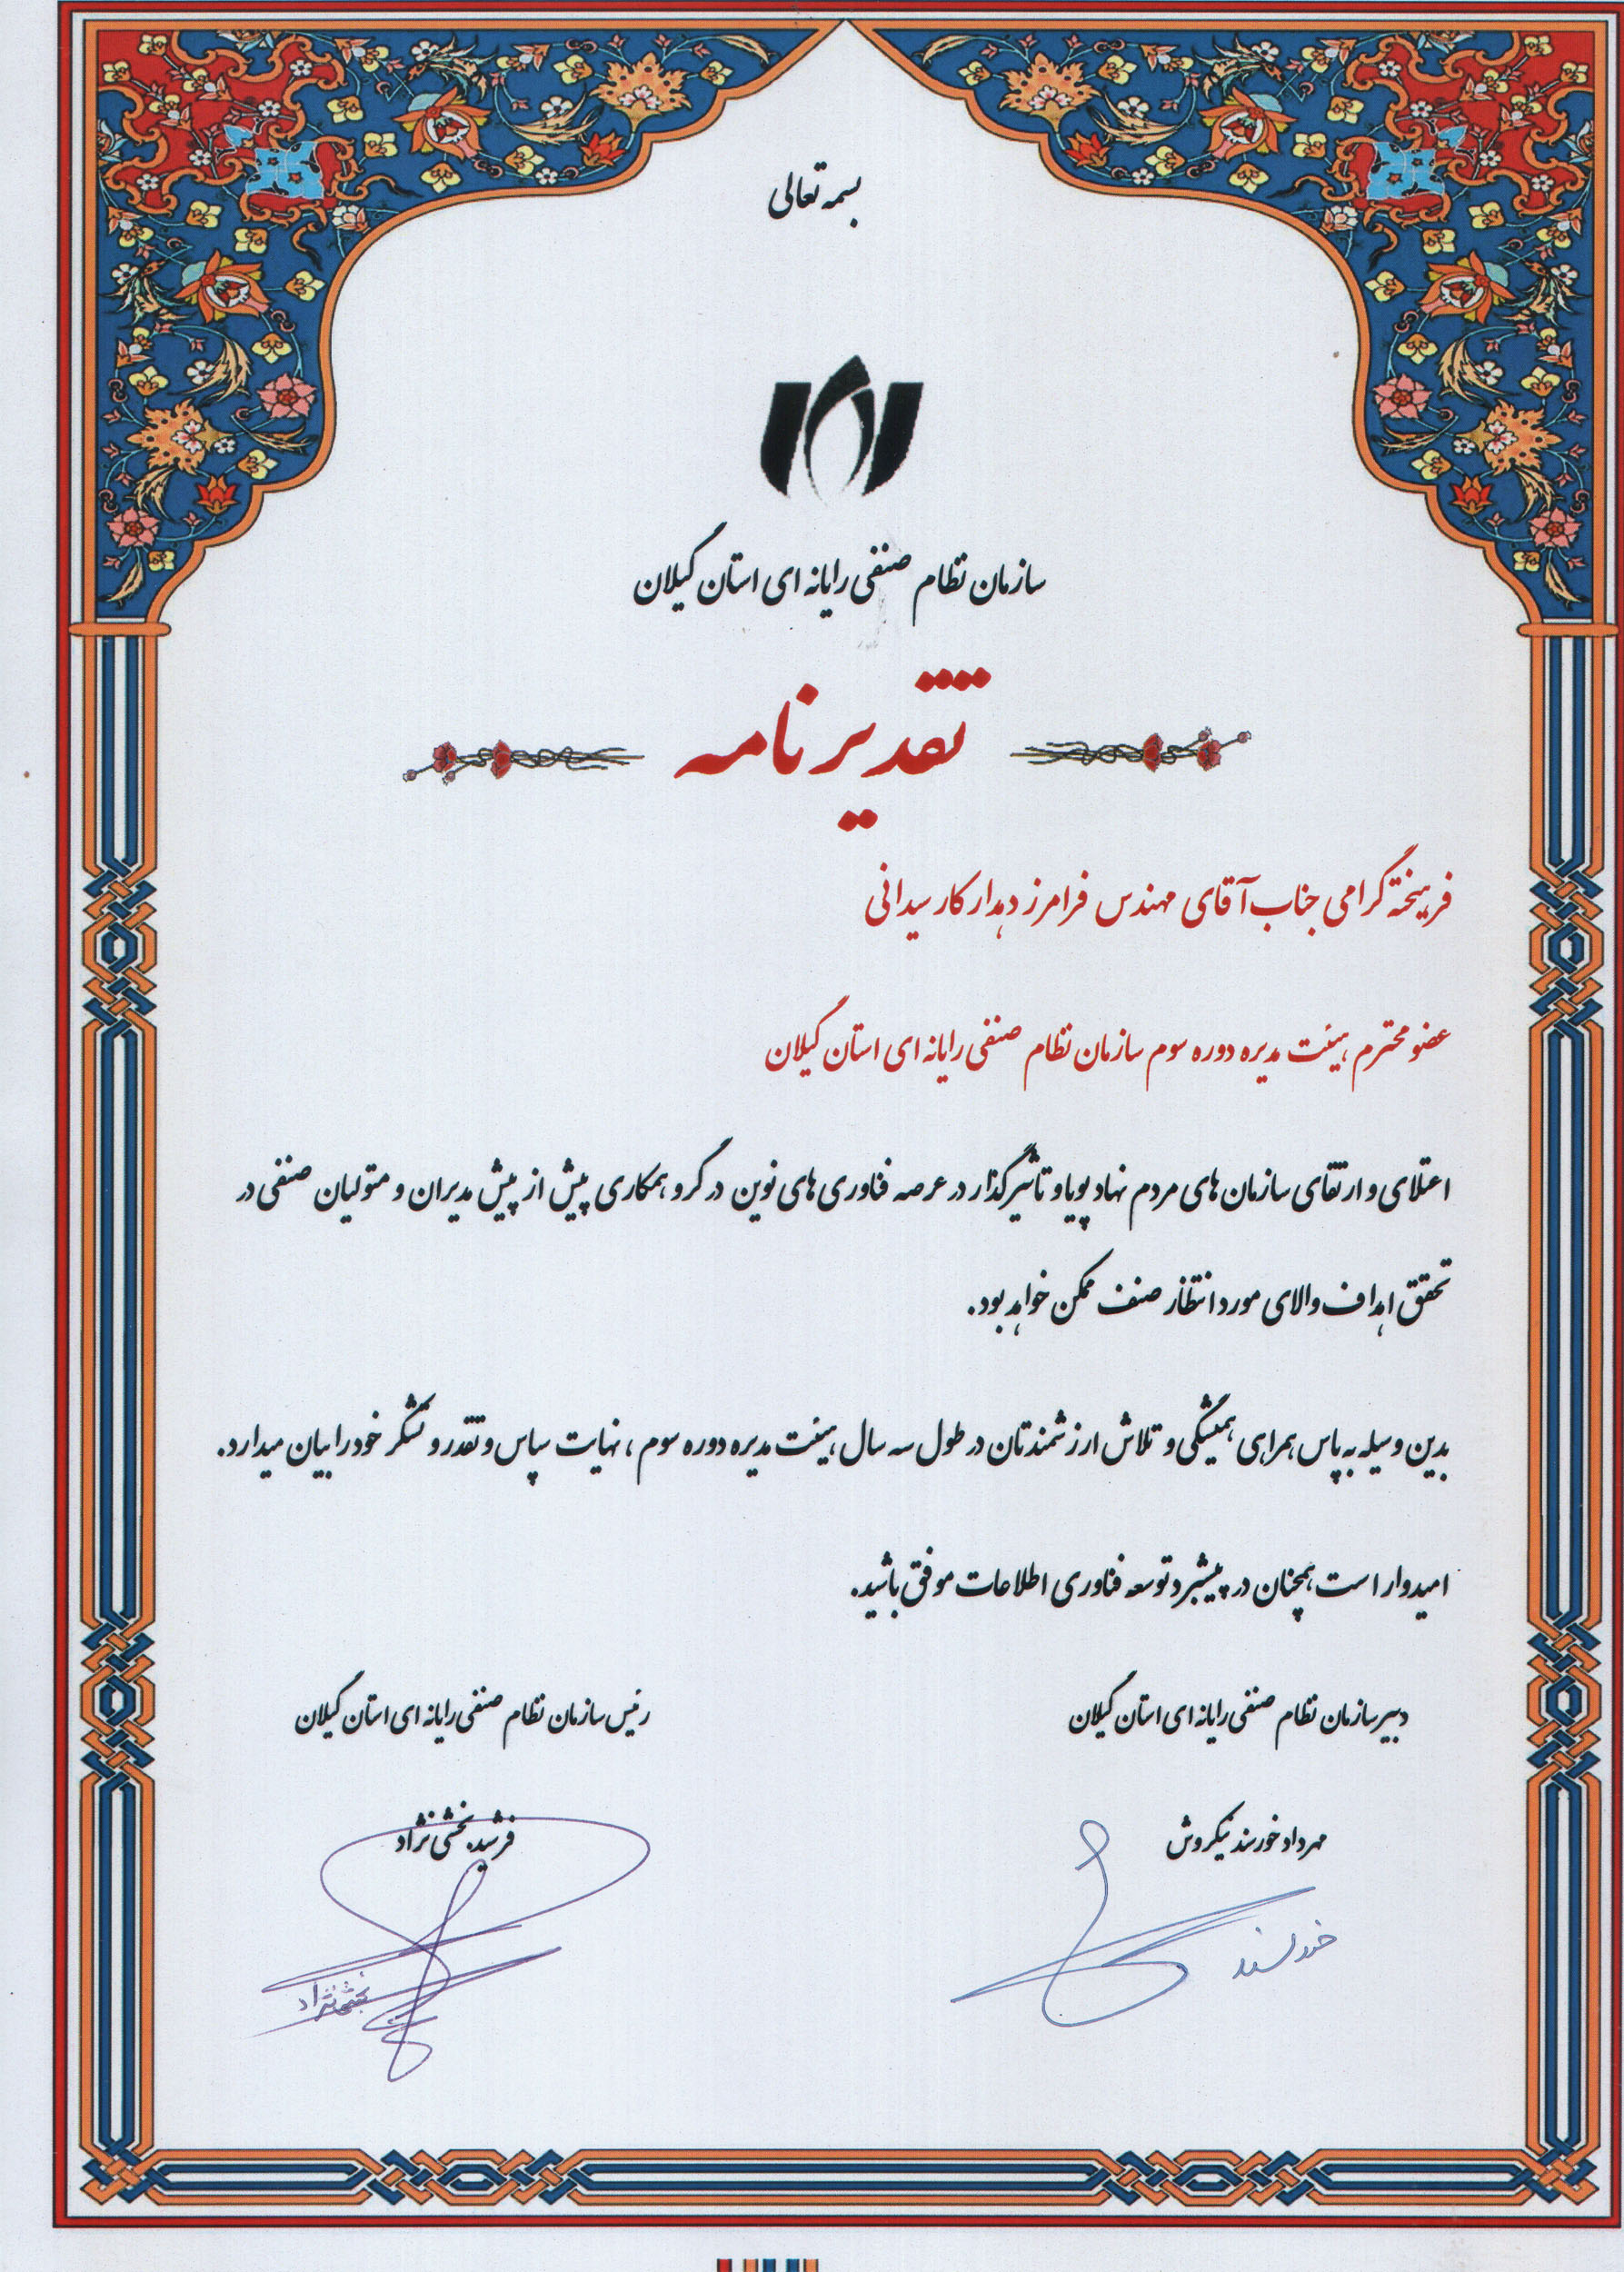 بسمه تعالی
سازمان نظام صنفی رایانه ای استان گیلان
تقدیرنامه
فرهیخته گرامی جناب آقای مهندس فرامرز دهدار کارسیدانی
عضو محترم هیئت مدیره دوره سوم سازمان نظام صنفی رایانه ای استان گیلان
اعتلای و ارتقای سازمان های مردم نهاد پویا و تاثیرگذار در عرصه فناوری های نوین در گرو همکاری پیش از پیش مدیران و متولیان صنفی در
تحقق اهداف والای مورد انتظار صنف ممکن خواهد بود.
بدین وسیله به پاس همراهی همیشگی و تلاش ارزشمندتان در طول سه سال هیئت مدیره دوره سوم ، نهایت سپاس و تقدر و تشکر خود را بیان میدارد.
امیدوار است همچنان در پیشبرد توسعه فناوری اطلاعات موفق باشید.
دبیر سازمان نظام صنفی رایانه ای استان گیلان
رئیس سازمان نظام صنفی رایانه ای استان گیلان
مهرداد خورسند نیکروش
فرشید بخشی نژاد
خورسند
بخشی نژاد